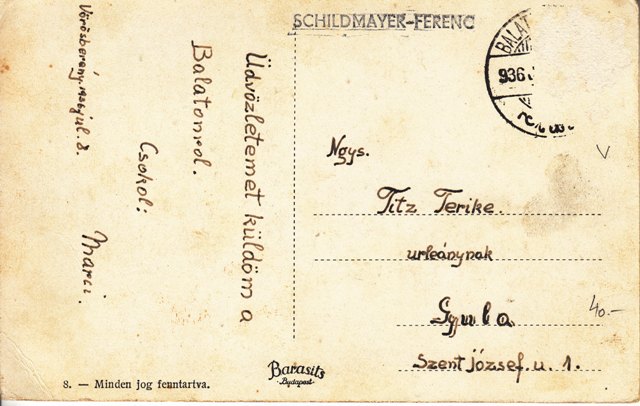 Vörösberény. 1936 júl. 8.
Üdvözletemet küldöm a
Balatonrol.
Csokol:
Marci.
SCHILDMAYER-FERENC
BALAT
936
Ngys.
Titz Terike.
urleánynak
Gyula
Szent józsef. u. 1.
40.-
Barasits
Budapest
8. — Minden jog fenntartva.